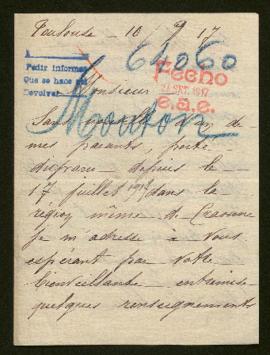 Toulouse - 16 - 9 - 17
64060
Pedir informes
Que se hace
Devolver
FECHO
21 SET. 1917
e.a.e.
Monsieur
Mouton
Sans nouvelles de
mes parents, porté
disparu depuis le
17 juillet dans la
région même de Craonne
je m'adresse à vous
espérant par votre
bienveillante entremise
quelques renseignements